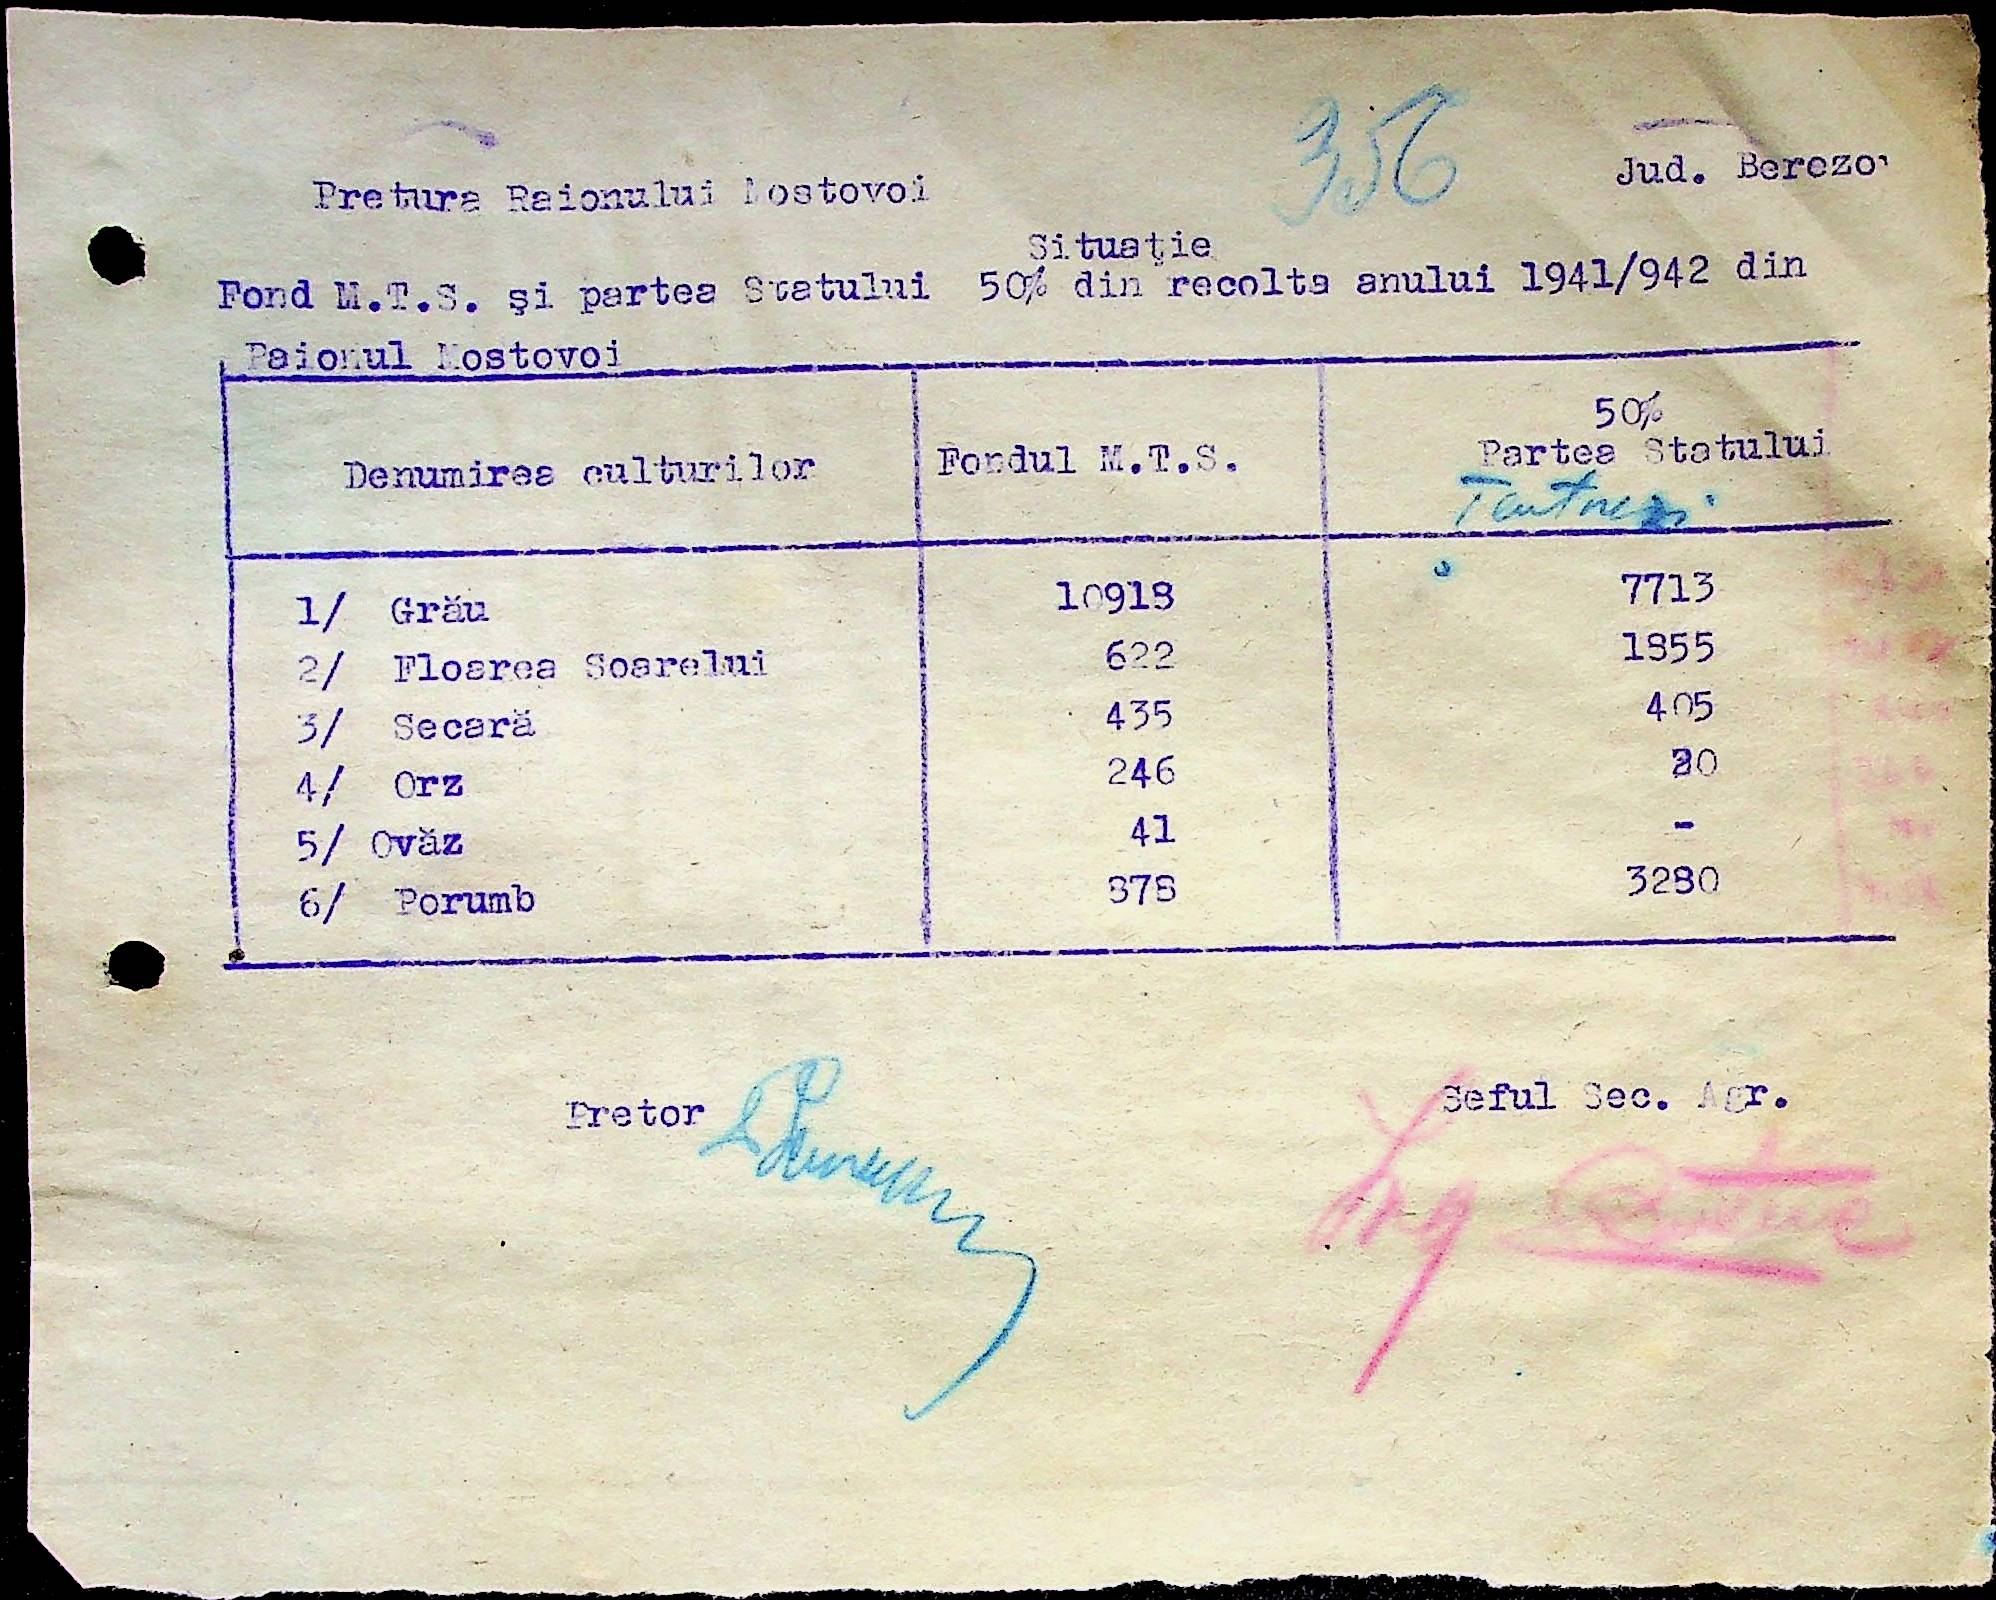 356
Pretura Raionului Mostovoi Jud. Berezo
Situaţie
Fond M.T.S. şi partea Statului 50% din recolta anului 1941/942 din
Raionul Mostovoi
50%
Denumirea culturilor Fondul M.T.S. Partea Statului
1/ Grău 10918 7713
2/ Floarea Soarelui 622 1855
3/ Secară 435 405
4/ Orz 246
5/ Ovăz 41 -
6/ Porumb 878 3280
Pretor Seful Sec. Agr.
Ing